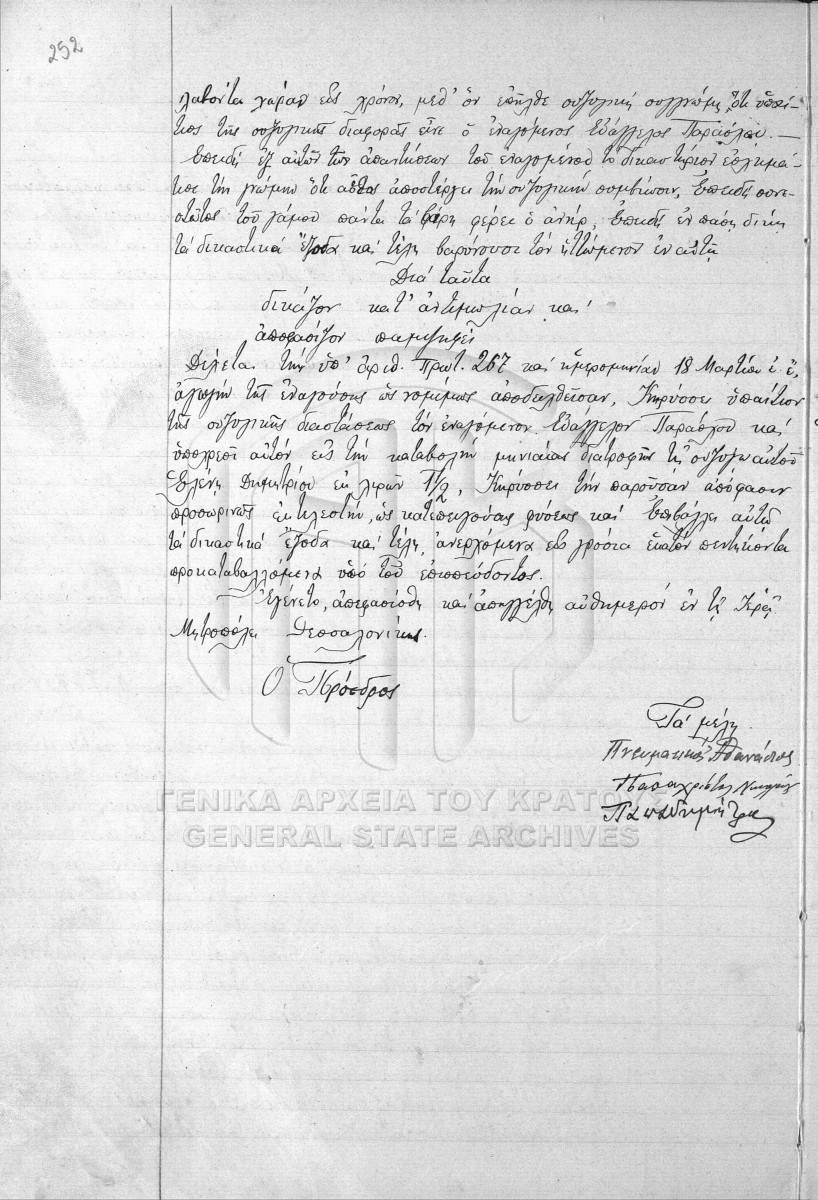 252
λαβόντα χάραν εἰς χρόνον, μεθ' ὃν ἐπῆλθε συζυγικὴ συγγνώμη, ὅτι ὑπαί-
τιος τῆς συζυγικῆς διαφορᾶς εἶνε ὁ ἐναγόμενος Εὐάγγελος Παράσχου. —
Ἐπειδὴ ἐξ αὐτῶν τῶν ἀπαντήσεων τοῦ ἐναγομένου τὸ δικαστήριον ἐσχημά-
τισε τὴν γνώμην ὅτι αὐτὸς ἀποστέργει τὴν συζυγικὴν συμβίωσιν, Ἐπειδὴ συνε-
στῶτος τοῦ γάμου πάντα τὰ βάρη φέρει ὁ ἀνήρ, Ἐπειδὴ ἐν πάσῃ δίκῃ
τὰ δικαστικὰ ἔξοδα καὶ τέλη βαρύνουσι τὸν ἡττώμενον ἐν αὐτῇ
Διὰ ταῦτα
δικάζον κατ' ἀντιμωλίαν καὶ
ἀποφασίζον παμψηφεὶ
Δέχεται τὴν ὑπ' ἀριθ. Πρωτ. 267 καὶ ἡμερομηνίαν 18 Μαρτίου ἐ. ἔ.
ἀγωγὴν τῆς ἐναγούσης ὡς νομίμως ἀποδειχθεῖσαν, Κηρύσσει ὑπαίτιον
τῆς συζυγικῆς διαστάσεως τὸν ἐναγόμενον Εὐάγγελον Παράσχου καὶ
ὑποχρεοῖ αὐτὸν εἰς τὴν καταβολὴν μηνιαίας διατροφῆς τῇ συζύγῳ αὐτοῦ
Ἑλένῃ Δημητρίου ἐκ λιρῶν 1½, Κηρύσσει τὴν παροῦσαν ἀπόφασιν
προσωρινῶς ἐκτελεστήν, ὡς κατεπειγούσης φύσεως καὶ Ἐπιβάλλει αὐτῷ
τὰ δικαστικὰ ἔξοδα καὶ τέλη, ἀνερχόμενα εἰς γρόσια ἑκατὸν πεντήκοντα
προκαταβαλλόμενα ὑπὸ τοῦ ἐπισπεύδοντος.
Ἐγένετο, ἀπεφασίσθη καὶ ἀπηγγέλθη αὐθημερὸν ἐν τῇ Ἱερᾷ
Μητροπόλει Θεσσαλονίκης.
Ὁ Πρόεδρος
Τὰ μέλη
Πνευματικὸς Ἀθανάσιος
Παπαχρίστος
Παπαδημήτρης
ΓΕΝΙΚΑ ΑΡΧΕΙΑ ΤΟΥ ΚΡΑΤΟΥΣ
GENERAL STATE ARCHIVES